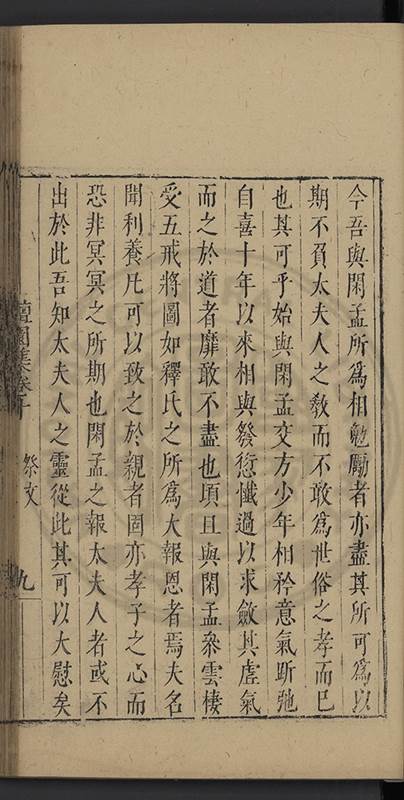 今吾與閑孟所爲相勉勵者亦盡其所可爲以
期不負太夫人之敎而不敢爲世俗之孝而已
也其可乎始與閑孟交方少年相矜意氣跅弛
自喜十年以來相與發愆懺過以求斂其虗氣
而之於道者靡敢不盡也頃且與閑孟叅雲棲
受五戒將圖如釋氏之所爲大報恩者焉夫名
聞利養凡可以致之於親者固亦孝子之心而
恐非冥冥之所期也閑孟之報太夫人者或不
出於此吾知太夫人之靈從此其可以大慰矣
園集卷十 祭文 九